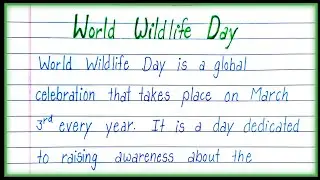 World Wildlife Day
World Wildlife Day is a global
celebration that takes place on March
3rd every year. It is a day dedicated
to raising awareness about the